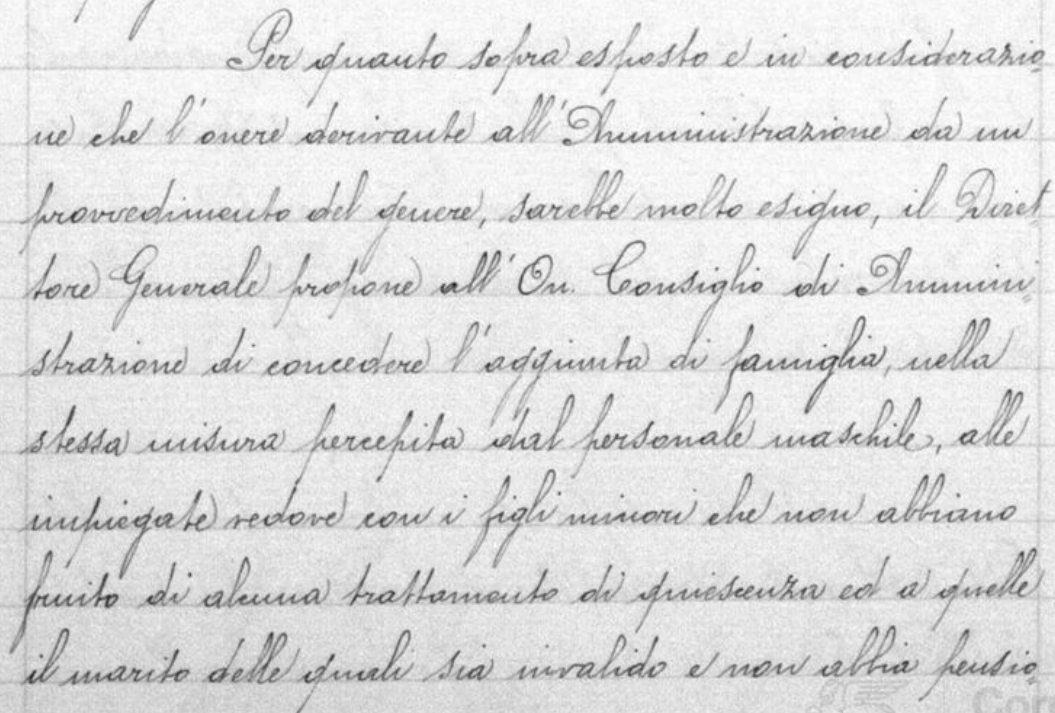 Per quanto sopra esposto e in considerazio
ne che l'onere derivante all'Amministrazione da un
provvedimento del genere, sarebbe molto esiguo, il Diret
tore Generale propone all'On. Consiglio di Ammini
strazione di concedere l'aggiunta di famiglia, nella
stessa misura percepita dal personale maschile, alle
impiegate vedove con i figli minori che non abbiano
fruito di alcuna trattamento di quiescenza ed a quelle
il marito delle quali sia invalido e non abbia pensio